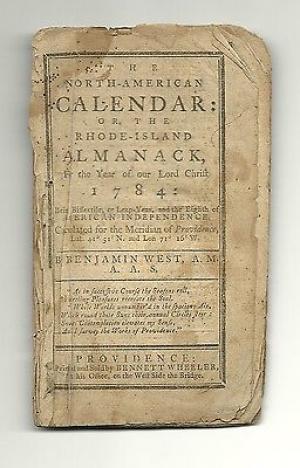 THE
NORTH-AMERICAN
CALENDAR:
OR, THE
RHODE-ISLAND
ALMANACK,
For the Year of our Lord Christ
1784:
Being Bissextile, or Leap-Year, and the Eighth of
AMERICAN INDEPENDENCE.
Calculated for the Meridian of Providence,
Lat. 41° 51' N. and Lon 71° 16' W.
B BENJAMIN WEST, A.M.
A. A. S.
As in successive Course the Seasons roll,
circling Pleasures recreate the Soul.
Worlds unnumber'd in the spacious Air,
Which round their Suns their annual Circles
Sweet Contemplation elevates my Sense,
I survey the Works of Providence."
PROVIDENCE:
Printed and Sold by BENNETT WHEELER,
his Office, on the West Side the Bridge.